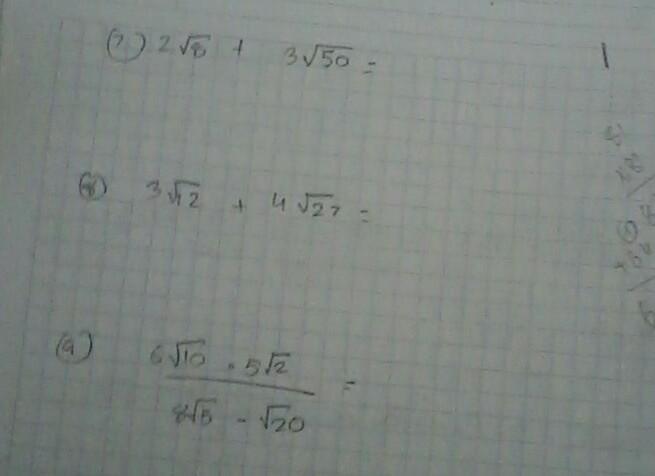 7) 2√8 + 3√50 =
8) 3√12 + 4√27 =
9) 6√10 · 5√2
8√5 - √20 =